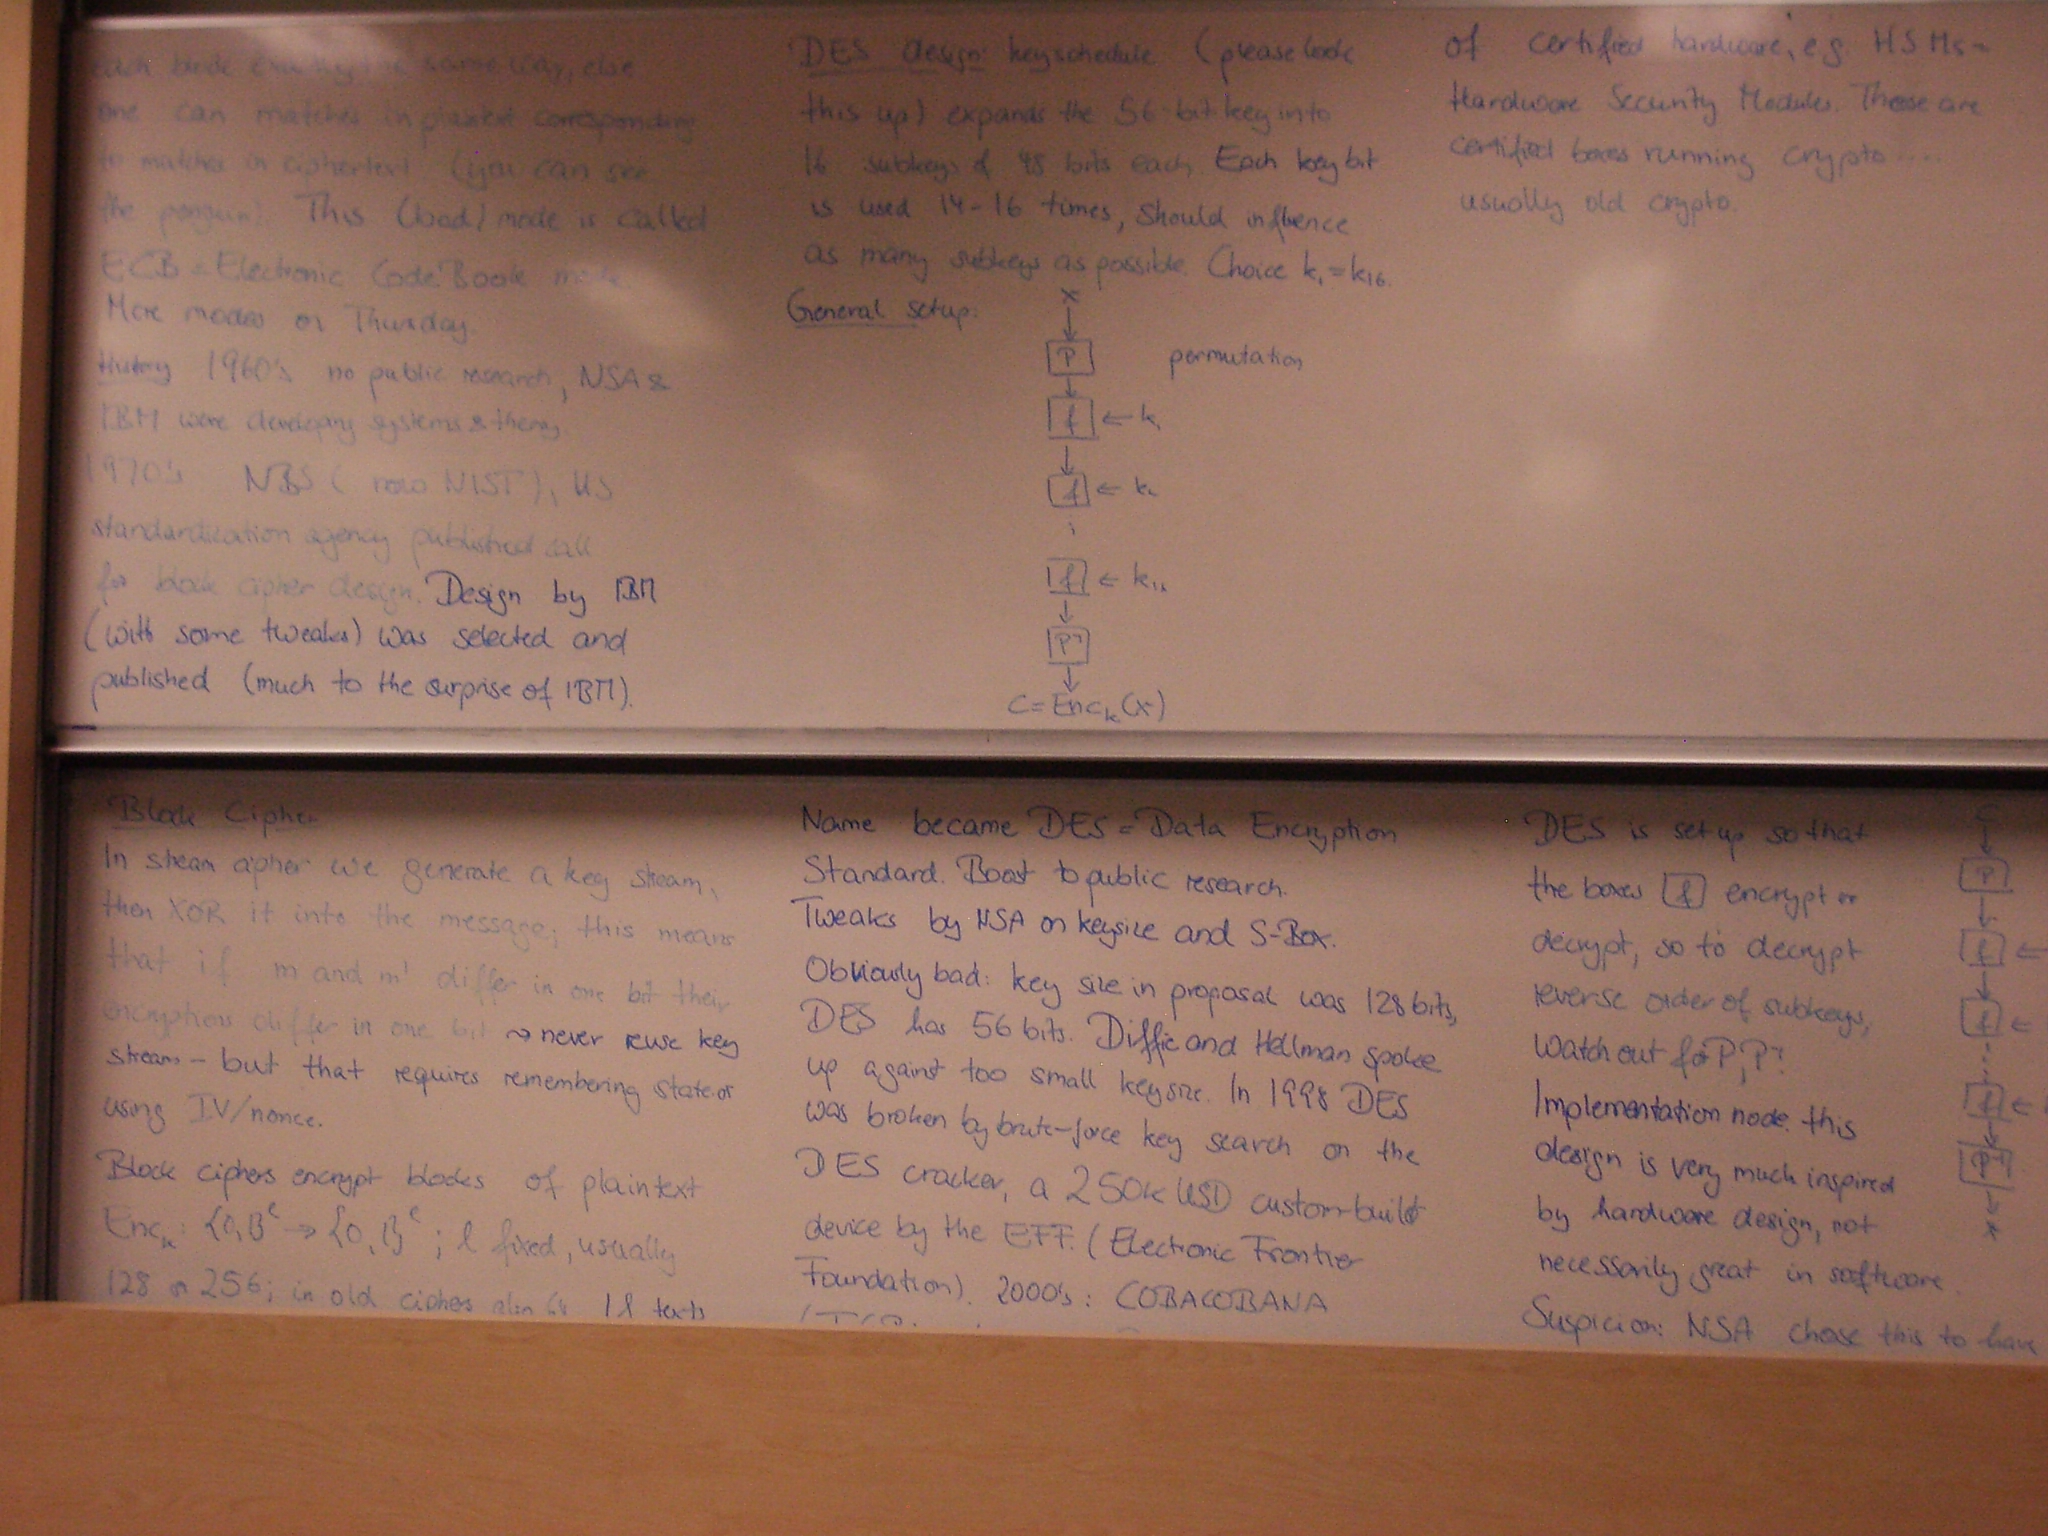 each block exactly the same way, else
one can matches in plaintext corresponding
to matches in ciphertext (you can see
the penguin). This (bad) mode is called
ECB = Electronic Code Book mode.
More modes on Thursday.
History 1960's no public research, NSA &
IBM were developing systems & theory.
1970's NBS (now NIST), US
standardization agency published call
for block cipher design. Design by IBM
(with some tweaks) was selected and
published (much to the surprise of IBM).
DES design: key schedule (please look
this up) expands the 56-bit key into
16 subkeys of 48 bits each. Each key bit
is used 14-16 times, should influence
as many subkeys as possible. Choice k₁=k₁₆.
General setup:
x
P permutation
f ← k₁
f ← k₂
⋮
f ← k₁₆
P⁻¹
C=Enc_k(x)
of certified hardware, e.g. HSMs -
Hardware Security Modules. These are
certified boxes running crypto....
usually old crypto.
Block Cipher
In stream cipher we generate a key stream,
then XOR it into the message; this means
that if m and m' differ in one bit their
encryptions differ in one bit ⇝ never reuse key
stream - but that requires remembering state or
using IV/nonce.
Block ciphers encrypt blocks of plaintext
Enc_k: {0,1}^ℓ → {0,1}^ℓ; ℓ fixed, usually
128 or 256; in old ciphers also 64
Name became DES = Data Encryption
Standard. Boost to public research.
Tweaks by NSA on keysize and S-Box.
Obviously bad: key size in proposal was 128 bits,
DES has 56 bits. Diffie and Hellman spoke
up against too small keysize. In 1998 DES
was broken by brute-force key search on the
DES cracker, a 250k USD custom-build
device by the EFF. (Electronic Frontier
Foundation). 2000's: COBACOBANA
DES is set up so that
the boxes f encrypt or
decrypt, so to decrypt
reverse order of subkeys,
watch out for P, P⁻¹
Implementation node: this
design is very much inspired
by hardware design, not
necessarily great in software.
Suspicion: NSA chose this to have
P
f ←
f ←
⋮
f ←
P⁻¹
x